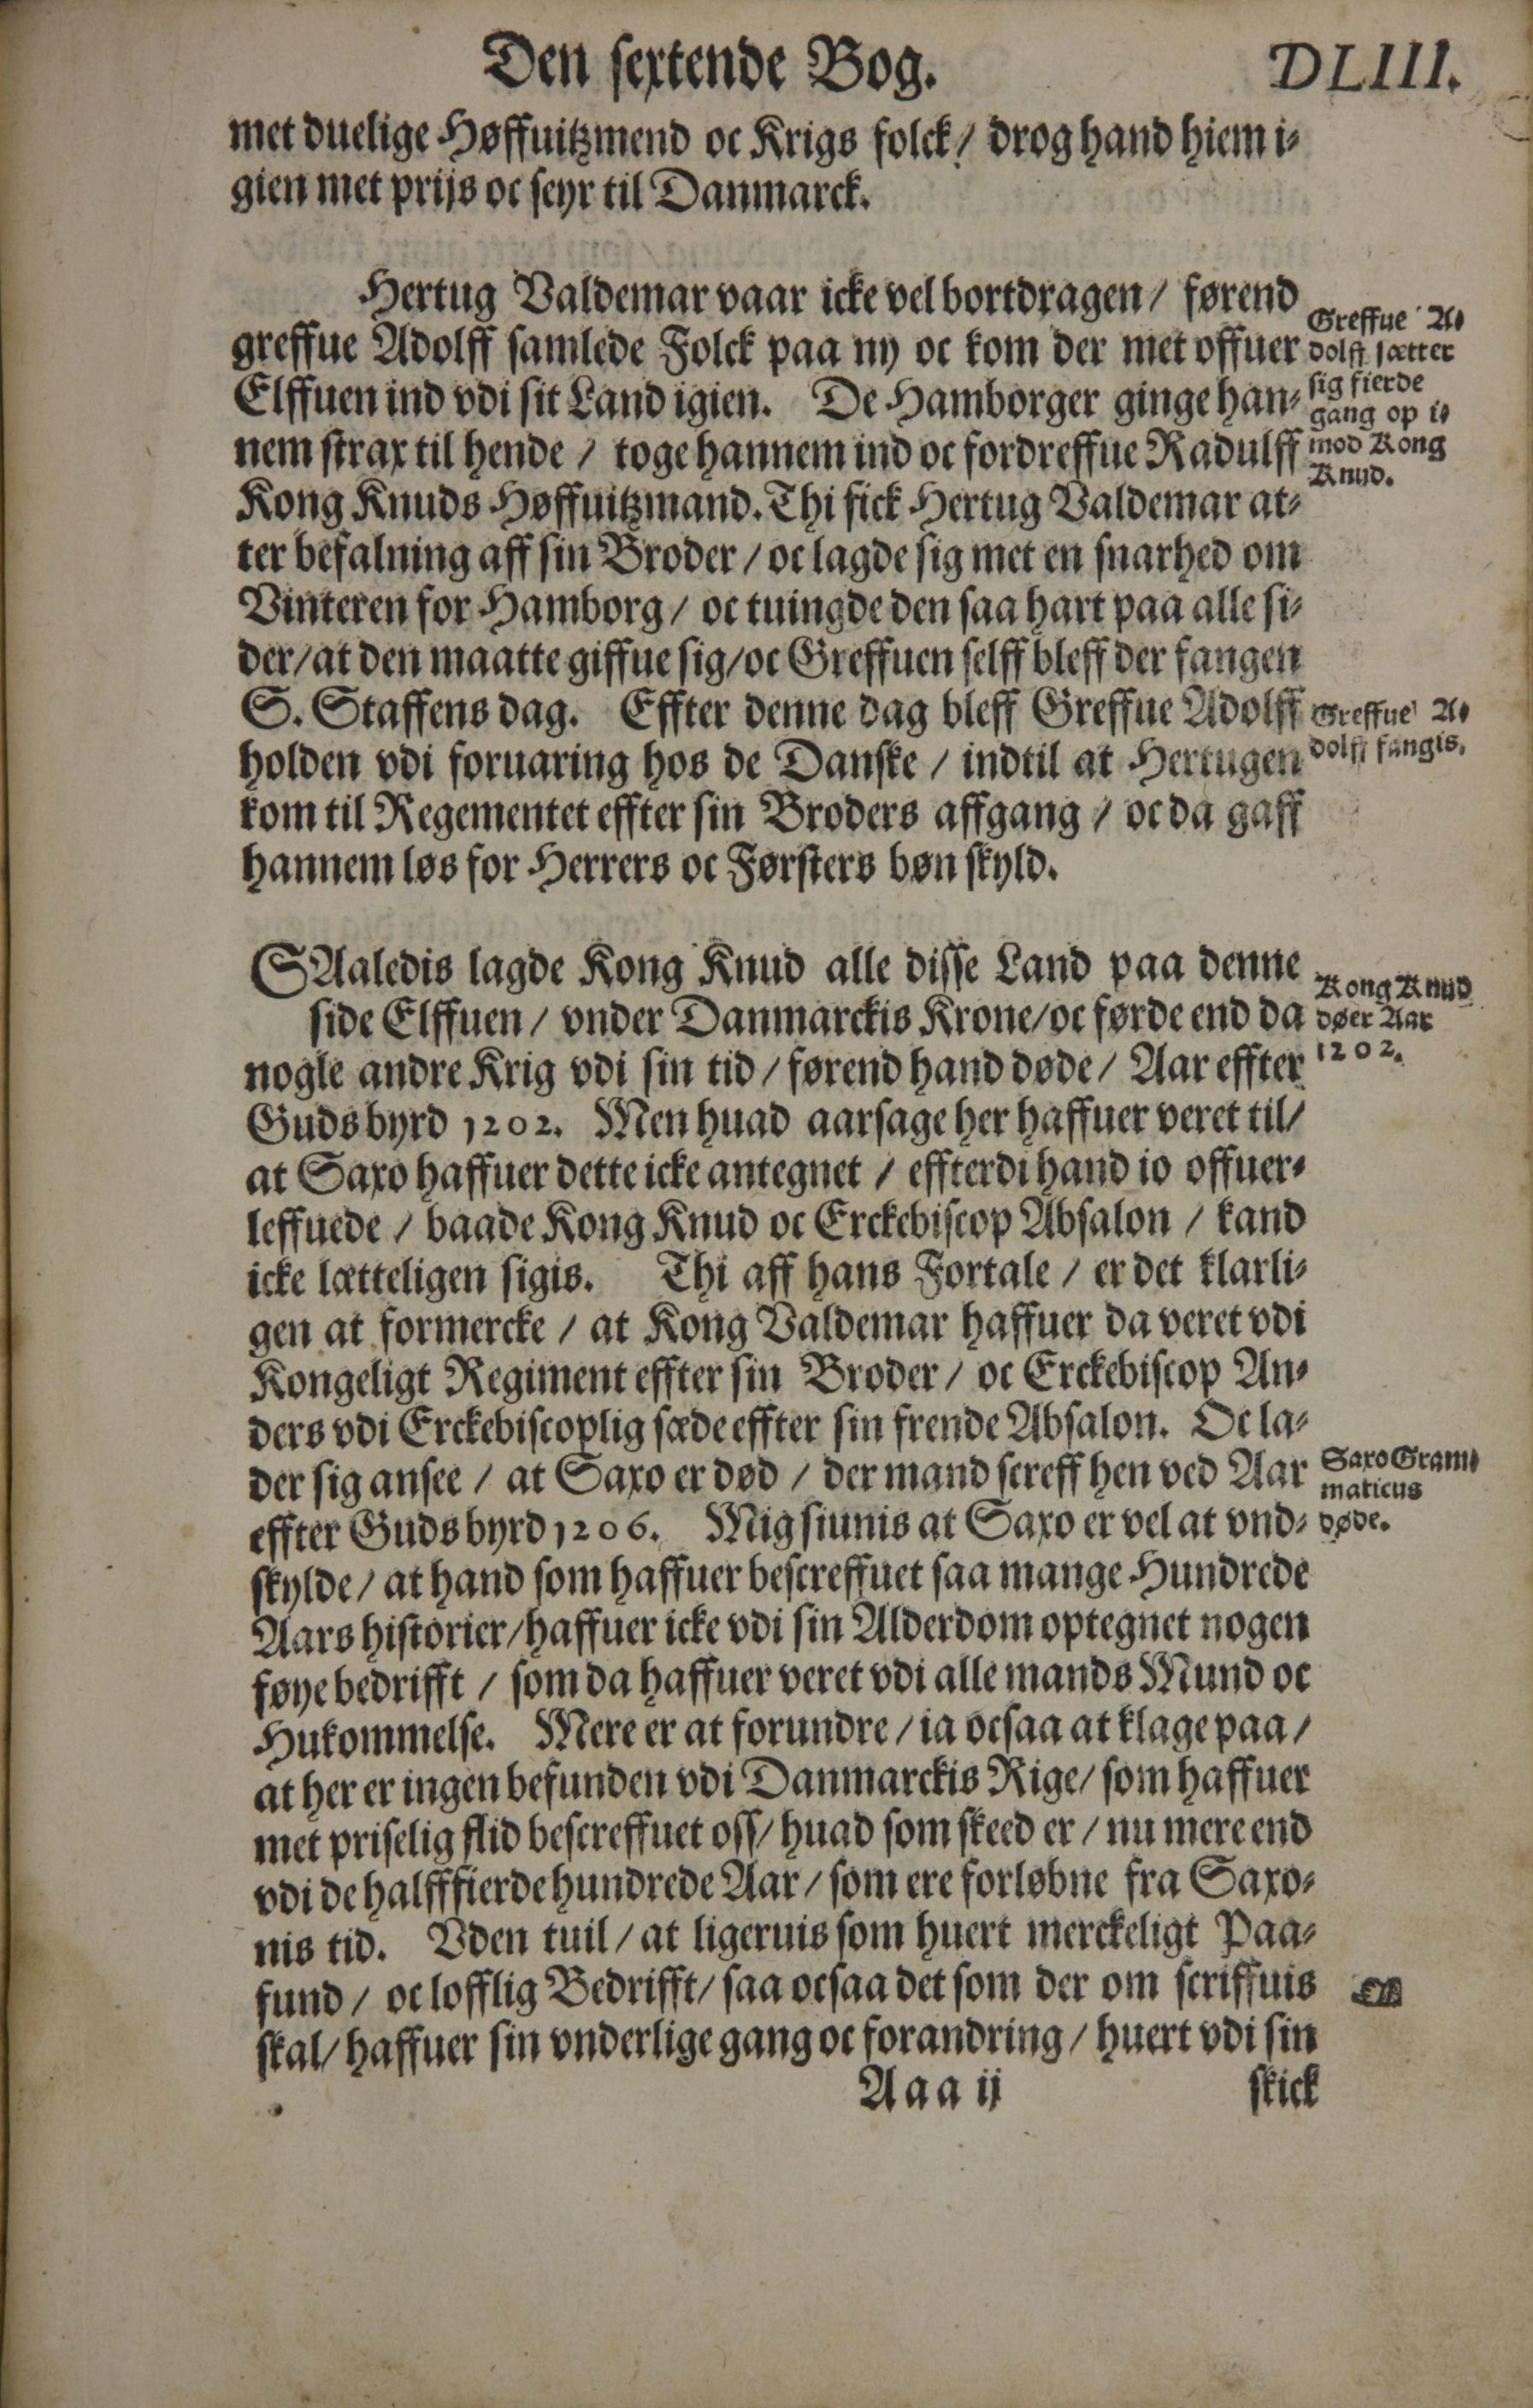 Den sextende Bog.
DLIII.
met duelige Høffuitzmend oc Krigs folck / drog hand hiem i-
gien met prijs oc seyr til Danmarck.
Hertug Valdemar vaar icke vel bortdragen / førend
greffue Adolff samlede Folck paa ny oc kom der met offuer
Elffuen ind vdi sit Land igien. De Hamborger ginge han-
nem strax til hende / toge hannem ind oc fordreffue Radulff
Kong Knuds Høffuitzmand. Thi fick Hertug Valdemar at-
ter befalning aff sin Broder / oc lagde sig met en snarhed om
Vinteren for Hamborg / oc tuingde den saa hart paa alle si-
der / at den maatte giffue sig / oc Greffuen selff bleff der fangen
S. Staffens dag. Effter denne dag bleff Greffue Adolff
holden vdi foruaring hos de Danske / indtil at Hertugen
kom til Regementet effter sin Broders affgang / oc da gaff
hannem løs for Herrers oc Førsters bøn skyld.
Greffue A-
dolff sætter
sig fierde
gang op i-
mod Kong
Knud.
Greffue A-
dolff fangis.
SAaledis lagde Kong Knud alle disse Land paa denne
side Elffuen / vnder Danmarckis Krone / oc førde end da
nogle andre Krig vdi sin tid / førend hand døde / Aar effter
Guds byrd 1202. Men huad aarsage her haffuer veret til /
at Saxo haffuer dette icke antegnet / effterdi hand io offuer-
leffuede / baade Kong Knud oc Erckebiscop Absalon / kand
icke lætteligen sigis. Thi aff hans Fortale / er det klarli-
gen at formercke / at Kong Valdemar haffuer da veret vdi
Kongeligt Regiment effter sin Broder / oc Erckebiscop An-
ders vdi Erckebiscoplig sæde effter sin frende Absalon. Oc la-
der sig ansee / at Saxo er død / der mand screff hen ved Aar
effter Guds byrd 1206. Mig siunis at Saxo er vel at vnd-
skylde / at hand som haffuer bescreffuet saa mange Hundrede
Aars historier / haffuer icke vdi sin Alderdom optegnet nogen
føye bedrifft / som da haffuer veret vdi alle mands Mund oc
Hukommelse. Mere er at forundre / ia ocsaa at klage paa /
at her er ingen befunden vdi Danmarckis Rige / som haffuer
met priselig flid bescreffuet oss / huad som skeed er / nu mere end
vdi de halfffierde hundrede Aar / som ere forløbne fra Saxo-
nis tid. Vden tuil / at ligeruis som huert merckeligt Paa-
fund / oc lofflig Bedrifft / saa ocsaa det som der om scriffuis
skal / haffuer sin vnderlige gang oc forandring / huert vdi sin
Kong Knud
døer Aar
1202.
Saxo Gram-
maticus
døde.
Aaa ij
skick